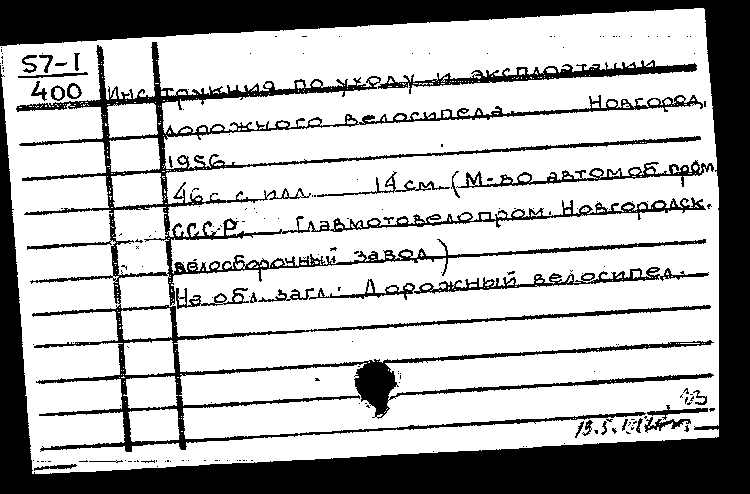 57-I
400
Инструкция по уходу и эксплоатации
дорожного велосипеда. Новгород,
1956.
46 с. с илл. 14 см. (М-во автомоб. пром.
СССР. Главмотовелопром. Новгородск.
велосборочный завод)
На обл. загл.: Дорожный велосипед.